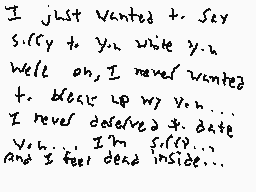 I just wanted to say
sorry to you while you
were on, I never wanted
to break up wy you...
I never deserved to date
you... I'm sorry...
and I feel dead inside...